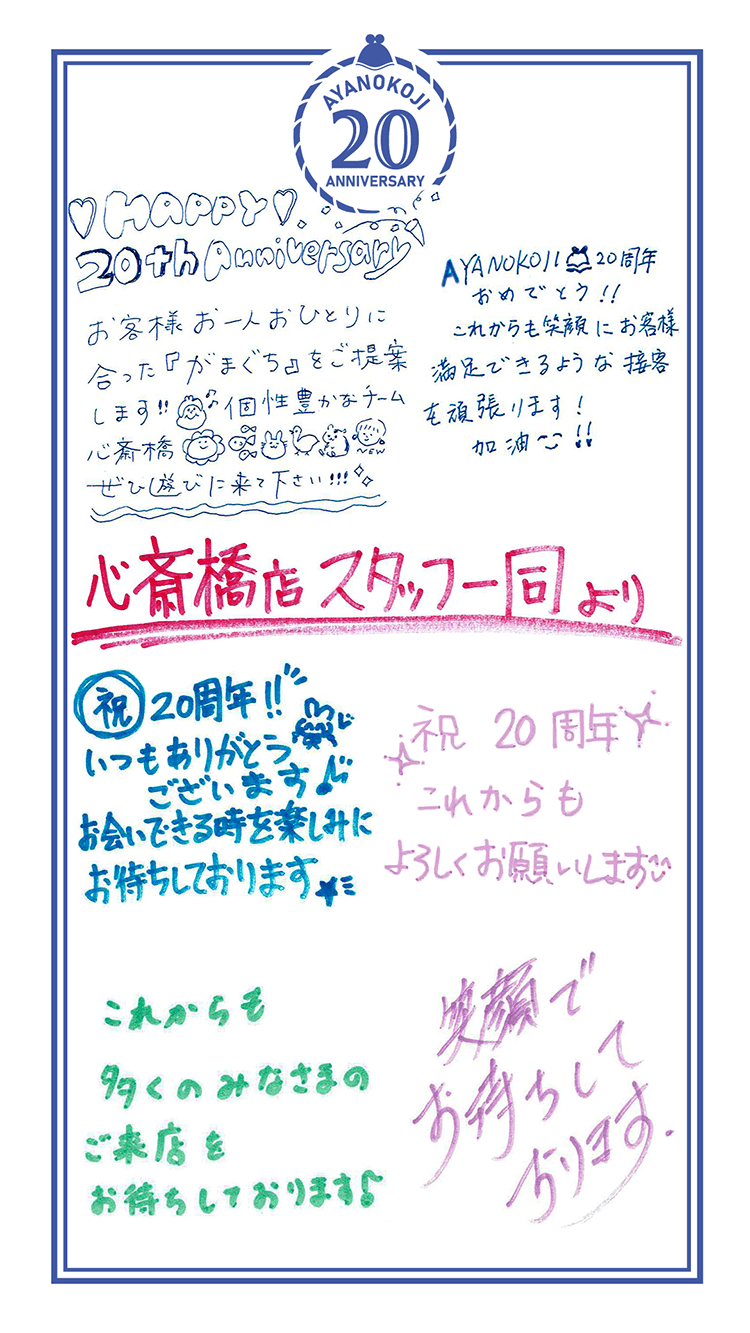 AYANOKOJI
20
ANNIVERSARY
HAPPY
20th Anniversary
お客様 お一人おひとりに
合った『がまぐち』をご提案
します!! 個性豊かなチーム
心斎橋
NEW
ぜひ遊びに来て下さい!!!
AYANOKOJI 20周年
おめでとう!!
これからも笑顔にお客様
満足できるような接客
を頑張ります!
加油 !!
心斎橋店 スタッフ一同より
祝 20周年!!
いつもありがとう
ございます♪
お会いできる時を楽しみに
お待ちしております★
祝 20周年
これからも
よろしくお願いします
これからも
多くのみなさまの
ご来店を
お待ちしております♪
笑顔で
お待ちして
おります.